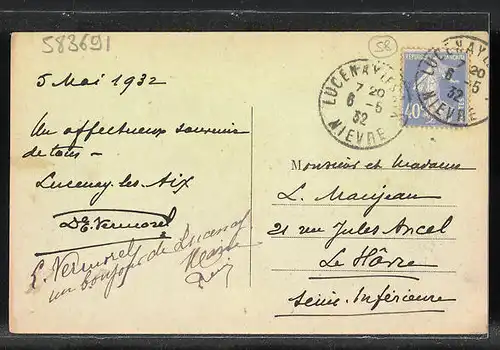 583691
SR
5 Mai 1932
Un affectueux souvenir
de tous -
Lucenay-les-Aix
DE. Vermorel
E. Vermorel
un bonjour de
LUCENAY-LES-AIX
7 20
6 -5
32
NIEVRE
LUCENAY
20
6 -5
32
NIEVRE
40
Monsieur et Madame
L. Marijean
21 rue Jules Ancel
Le Hâvre
Seine-Inférieure